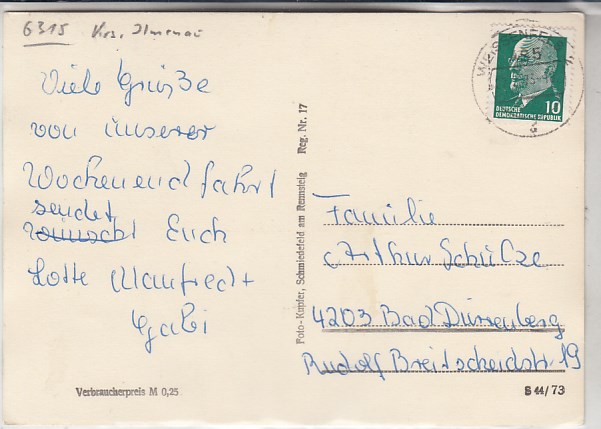 6315 Krs. Ilmenau
Viele Grüße
von unserer
Wochenendfahrt
sendet
wünscht Euch
Lotte Manfred +
Gabi
Verbraucherpreis M 0,25
Foto-Kupfer, Schmiedefeld am Rennsteig Reg. Nr. 17
10
DEUTSCHE
DEMOKRATISCHE REPUBLIK
Familie
Arthur Schülze
4203 Bad Dürrenberg
Rudolf Breitscheidstr. 19
S 44/73